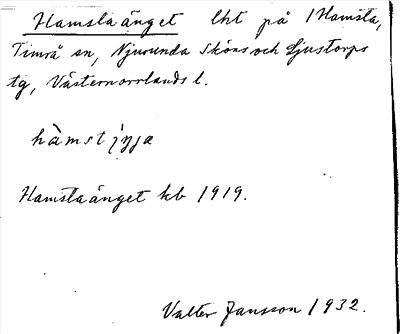 Hamstaänget lht på 1 Hamsta,
Timrå sn, Njurunda Sköns och Ljustorps
tg, Västernorrlands l.
hàmst jŋja
Hamstaänget kb 1919.
Valter Jansson 1932.